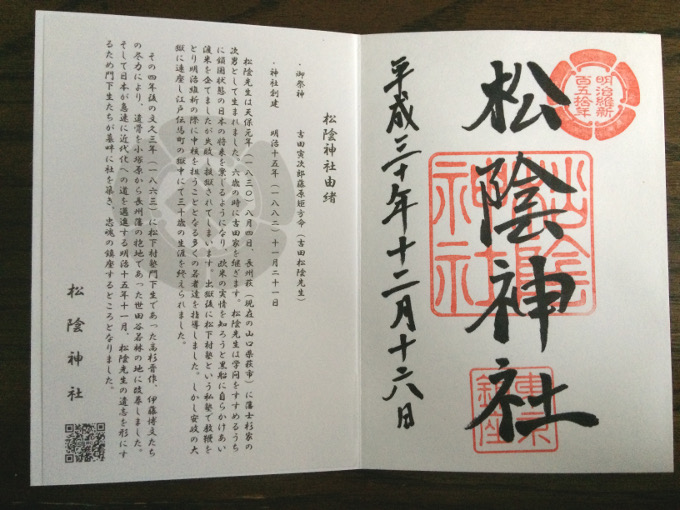 明治維新
百五拾年
松陰神社
松陰
神社
東京
鎮座
平成三十年十二月十六日
松陰神社由緒
・御祭神　吉田寅次郎藤原矩方命（吉田松陰先生）
・神社創建　明治十五年（一八八二）十一月二十一日
松陰先生は天保元年（一八三〇）八月四日、長州萩（現在の山口県萩市）に藩士杉家の
次男として生まれました。六歳の時に吉田家を継ぎます。松陰先生は学問をすすめるうち
に鎖国状態の日本の将来を案じるようになり、欧米の実情を知ろうと黒船に自らかけあい
渡米を企てましたが失敗し投獄されてしまいます。出獄後に松下村塾という私塾で教鞭を
とり明治維新の際に中核を担うこととなる多くの若者達を指導しました。しかし安政の大
獄に連座し江戸伝馬町の獄中にて三十歳の生涯を終えられました。
その四年後の文久三年（一八六三）に松下村塾門下生であった高杉晋作、伊藤博文たち
の尽力により、遺骨を小塚原から長州藩の抱地であった世田谷若林の地に改葬しました。
そして日本が急速に近代化への道を邁進する明治十五年十一月、松陰先生の遺志を形にす
るため門下生たちが墓畔に社を築き、忠魂の鎮座するところとなりました。
松陰神社